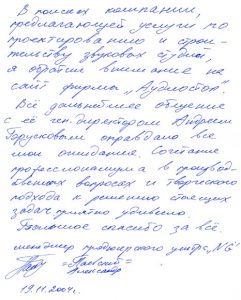 В поисках компании,
предлагающей услуги по
проектированию и строи-
тельству звуковых студий,
я обратил внимание на
сайт фирмы „Аудиостор".
Всё дальнейшее общение
с её ген.директором Андреем
Борусковым оправдало все
мои ожидания. Сочетание
профессионализма в производ-
ственных вопросах и творческого
подхода к решению стоящих
задач приятно удивило.
Большое спасибо за всё,
менеджер продюсерского центра „N6"
Александр
19.11.2004г.